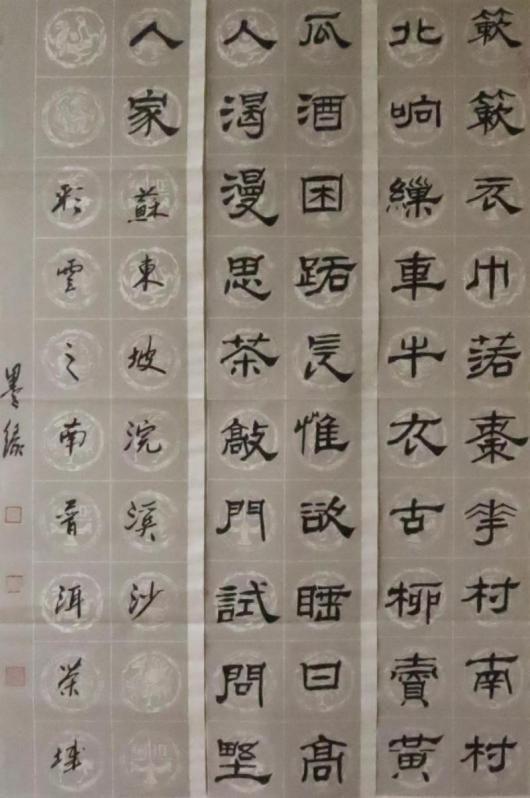 簌簌衣巾落棗花村南村
北响繅車牛衣古柳賣黃
瓜酒困路長惟欲睡日高
人渴漫思茶敲門試問野
人家蘇東坡浣溪沙
彩雲之南普洱茶城
墨緣